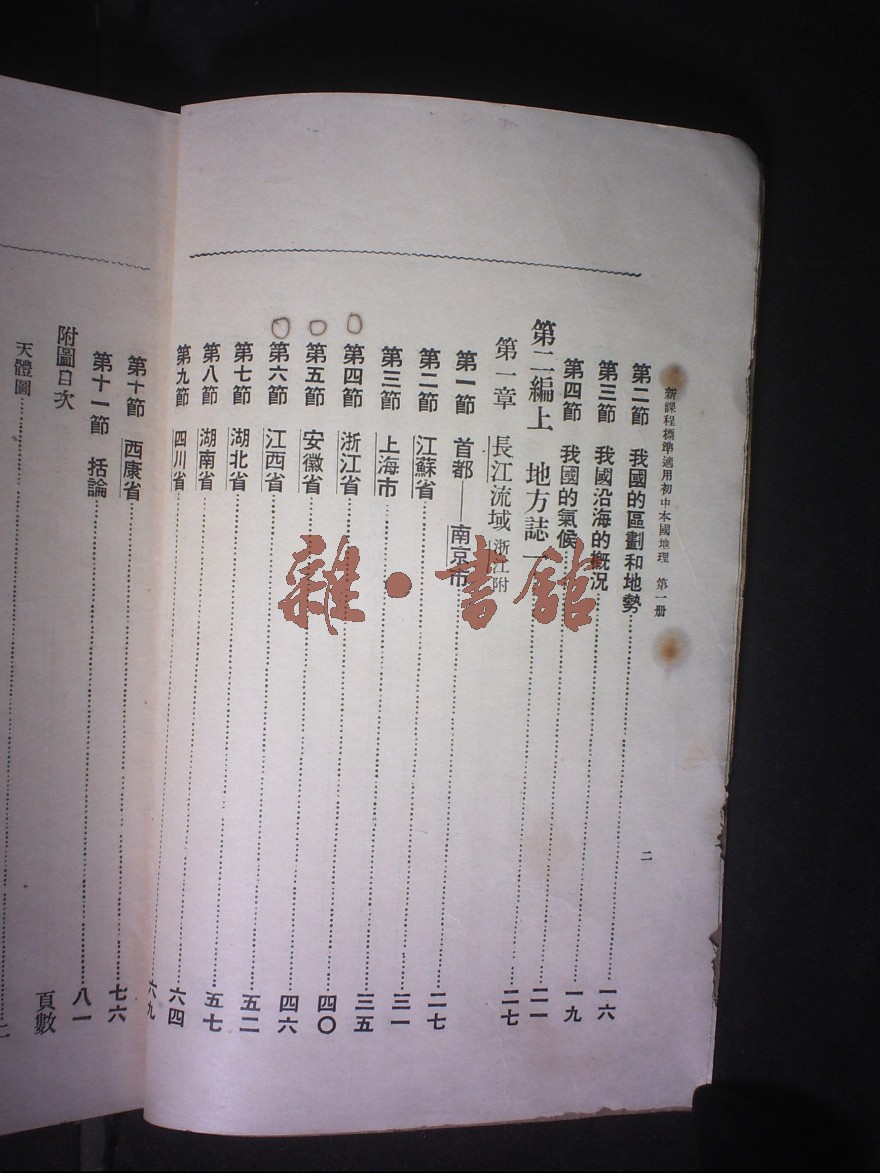 新課程標準適用初中本國地理 第一册
二
第二節 我國的區劃和地勢……一六
第三節 我國沿海的概況……一九
第四節 我國的氣候……二一
第二編上 地方誌一……二七
第一章 長江流域 浙江附
第一節 首都——南京市……二七
第二節 江蘇省……三一
第三節 上海市……三五
第四節 浙江省……四〇
第五節 安徽省……四六
第六節 江西省……五二
第七節 湖北省……五七
第八節 湖南省……六四
第九節 四川省……六九
第十節 西康省……七六
第十一節 括論……八一
附圖目次 頁數
天體圖……二
雜·書館